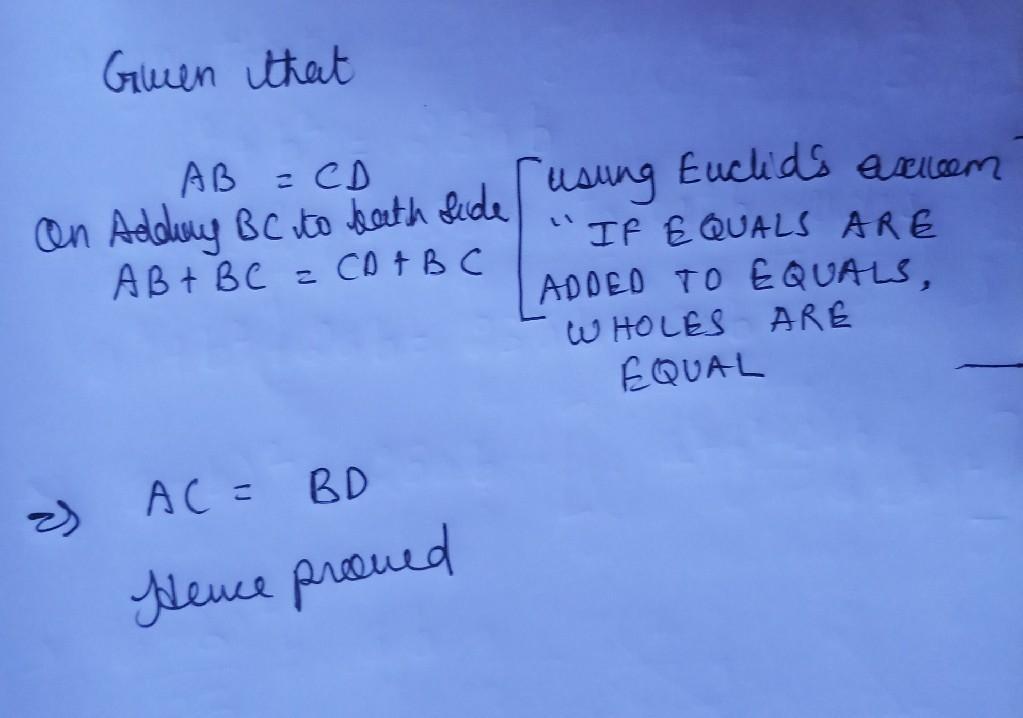 Given that
AB = CD
On Adding BC to both side
AB + BC = CD + BC
[using Euclid's axiom
"IF EQUALS ARE
ADDED TO EQUALS,
WHOLES ARE
EQUAL
⇒ AC = BD
Hence proved